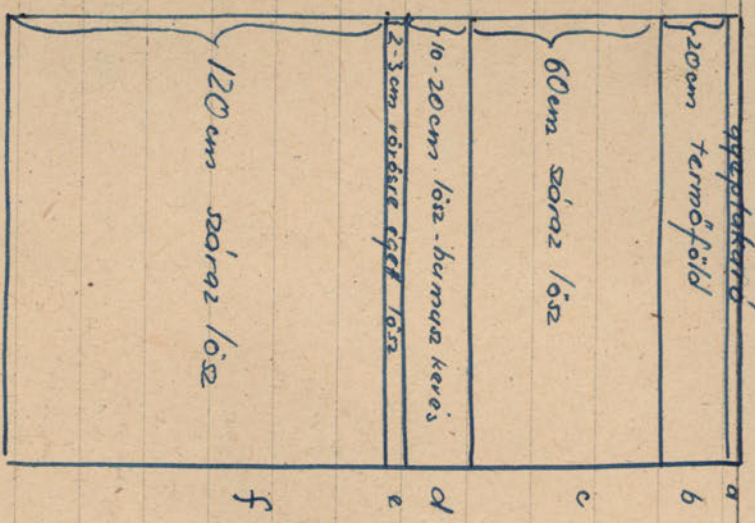 gyeptakaró a
20cm termőföld b
60cm száraz lősz c
10-20cm lősz-humusz kevés d
2-3cm vörösre égett lősz e
120cm száraz lősz f